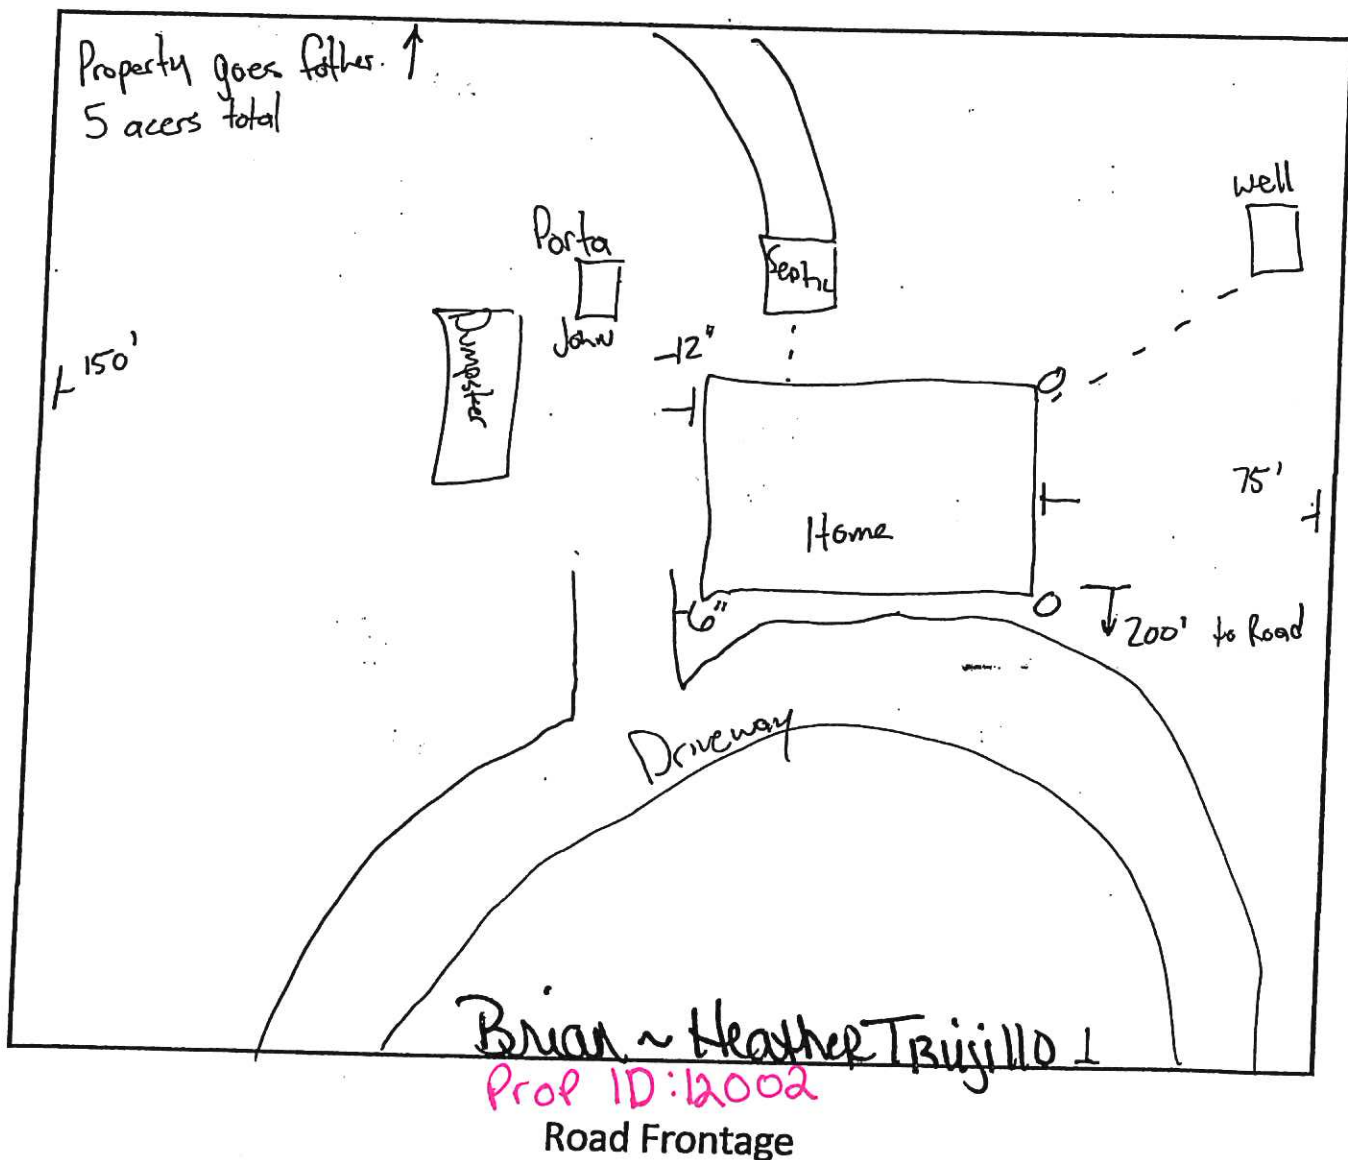 Property goes father. ↑
5 acers total
well
Porta
John
Septic
Dumpster
150'
12"
75'
Home
6"
200' to Road
Driveway
Brian ~ Heather Trujillo
Prop ID: 12002
Road Frontage